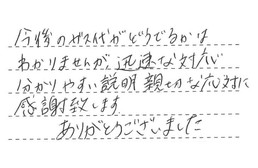 今後のガス代がどうでるかは
わかりませんが、迅速な対応
分かりやすい説明 親切な応対に
感謝致します
ありがとうございました